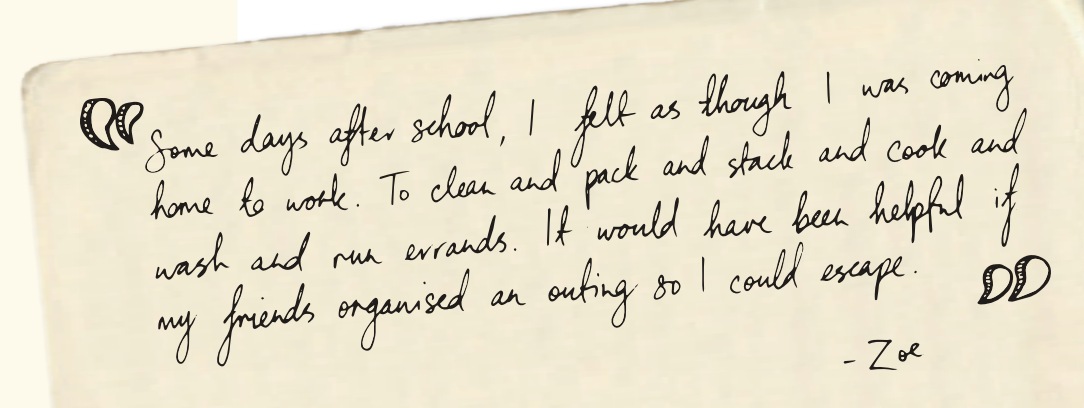 “Some days after school, I felt as though I was coming
home to work. To clean and pack and stack and cook and
wash and run errands. It would have been helpful if
my friends organised an outing so I could escape.”
- Zoe